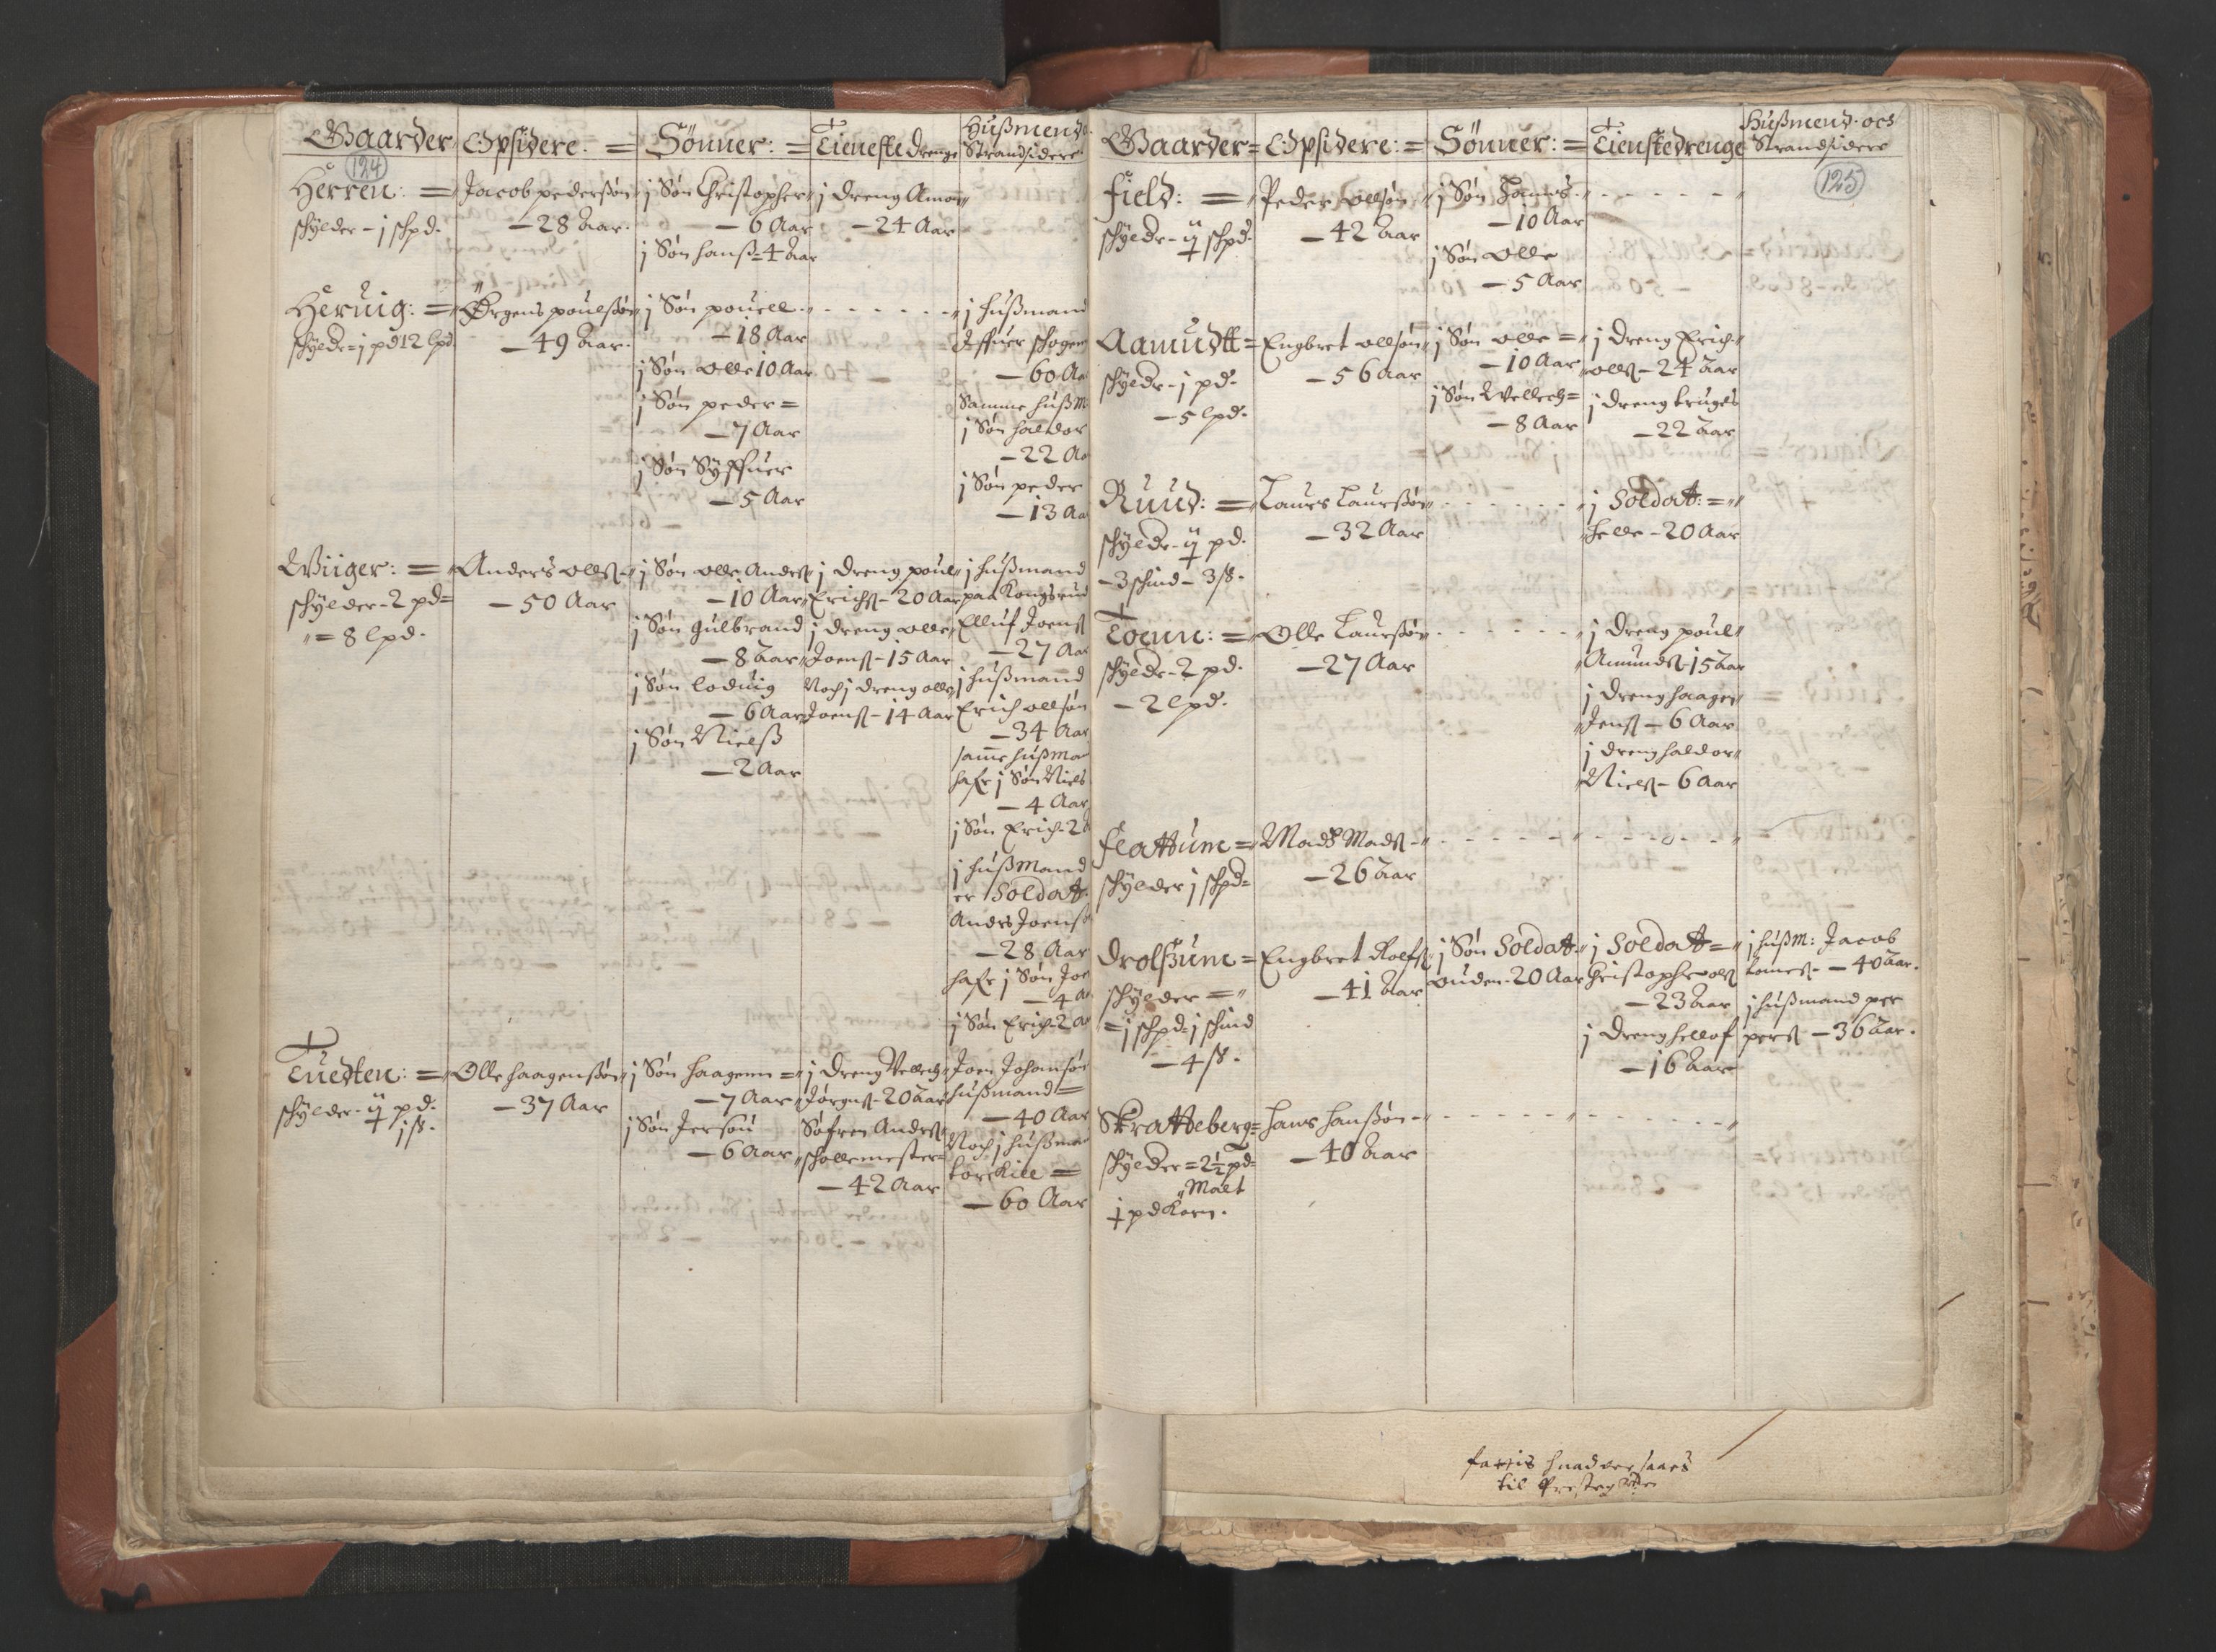 Gaarder
Opsidere: =
Sönner: =
Tieneste drenge
Hußmend
Strandsidere
124
Herren: =
schylder - j schpd.
Jacob pederßön
- 28 Aar.
j Sön Christopher
- 6 Aar
j Sön Hanß - 4 Aar
j dreng Amon
- 24 Aar
Heruig: =
schylder - j pd 12 lpd.
Örgens poulßön
- 49 Aar.
j Sön pouell
- 18 Aar
j Sön Olle 10 Aar
j Sön peder =
- 7 Aar
j Sön Syffuer
- 5 Aar
j Hußmand
Effuer
- 60 Aa
Samme Hußm
j Sön Haldor
- 22 Aa
j Sön peder
- 13 Aa
Wiiger: =
schylder - 2 pd =
= 8 lpd.
Anders Ollß
- 50 Aar
j Sön Olle Anderß
- 10 Aar
j Sön Gulbrand
- 8 Aar
j Sön Loduig
- 6 Aar
j Sön Nielß
- 2 Aar
j dreng poul
Erichß - 20 Aar
j dreng Olle
Joenß - 15 Aar
Noch j dreng Olle
Joenß - 14 Aar
j Hußmand
paa Kongsrud
Elluf Joenß
- 27 Aar
j Hußmand
Erich Ollsön
- 34 Aar
samme Hußma
hafr j Sön Niels
- 4 Aar
j Sön Erich - 2 A
j Hußmand
er Soldat.
Anders Joens
- 28 Aar
hafr j Sön Joe
- 4 A
j Sön Erich - 2 Aa
Tuedten: =
schylder - ij pd.
j ß.
Olle Haagenßön
- 37 Aar
j Sön Haagenn =
- 7 Aar
j Sön Jersou
- 6 Aar
j dreng Vellech
Jörgenß - 20 Aar
Söfren Anderß
schollemester
- 42 Aar
Joen Johansön
Hußmand =
- 40 Aar
Noch j Hußma
Torckill =
- 60 Aar
Gaarder =
Opsidere: =
Sönner: =
Tienstedrenge
Hußmend. och
Strandsidere
125
Field: =
schylder - ij schpd.
Peder Ollsön
- 42 Aar
j Sön Tomes
- 10 Aar
j Sön Olle
- 5 Aar
Aamudtt =
schylder - j pd.
- 5 lpd.
Engbret Ollsön
- 56 Aar
j Sön Olle =
- 10 Aar
j Sön Wellech =
- 8 Aar
j dreng Erich
Ollß - 24 Aar
j dreng
- 22 Aar
Ruud: =
schylder - ij pd.
- 3 schind - 3 ß.
Laurs Laurßön
- 32 Aar
j Soldat: =
Helle - 20 Aar
Toenn: =
schylder - 2 pd.
- 2 lpd.
Olle Laurßön
- 27 Aar
j dreng poul
Amundß 15 Aar
j dreng Haagen
Jenß - 6 Aar
j dreng Haldor
Nielß - 6 Aar
Flattum =
schylder j schpd =
Mads Madß
- 26 Aar
Drolßum =
schylder =
= j schpd - j schind
- 4 ß.
Engbret Rolfß
- 41 Aar
j Sön Soldat
Ouden - 20 Aar
j Soldat =
Christopher Olß
- 23 Aar
j dreng Hellof
- 16 Aar
j Hußm: Jacob
Tomeß - - 40 Aar.
j Hußmand per
perß - 36 Aar.
Skratteberg =
schylder = 2½ pd =
Malt
j pd Korn.
Hans Hanßön
- 40 Aar
til